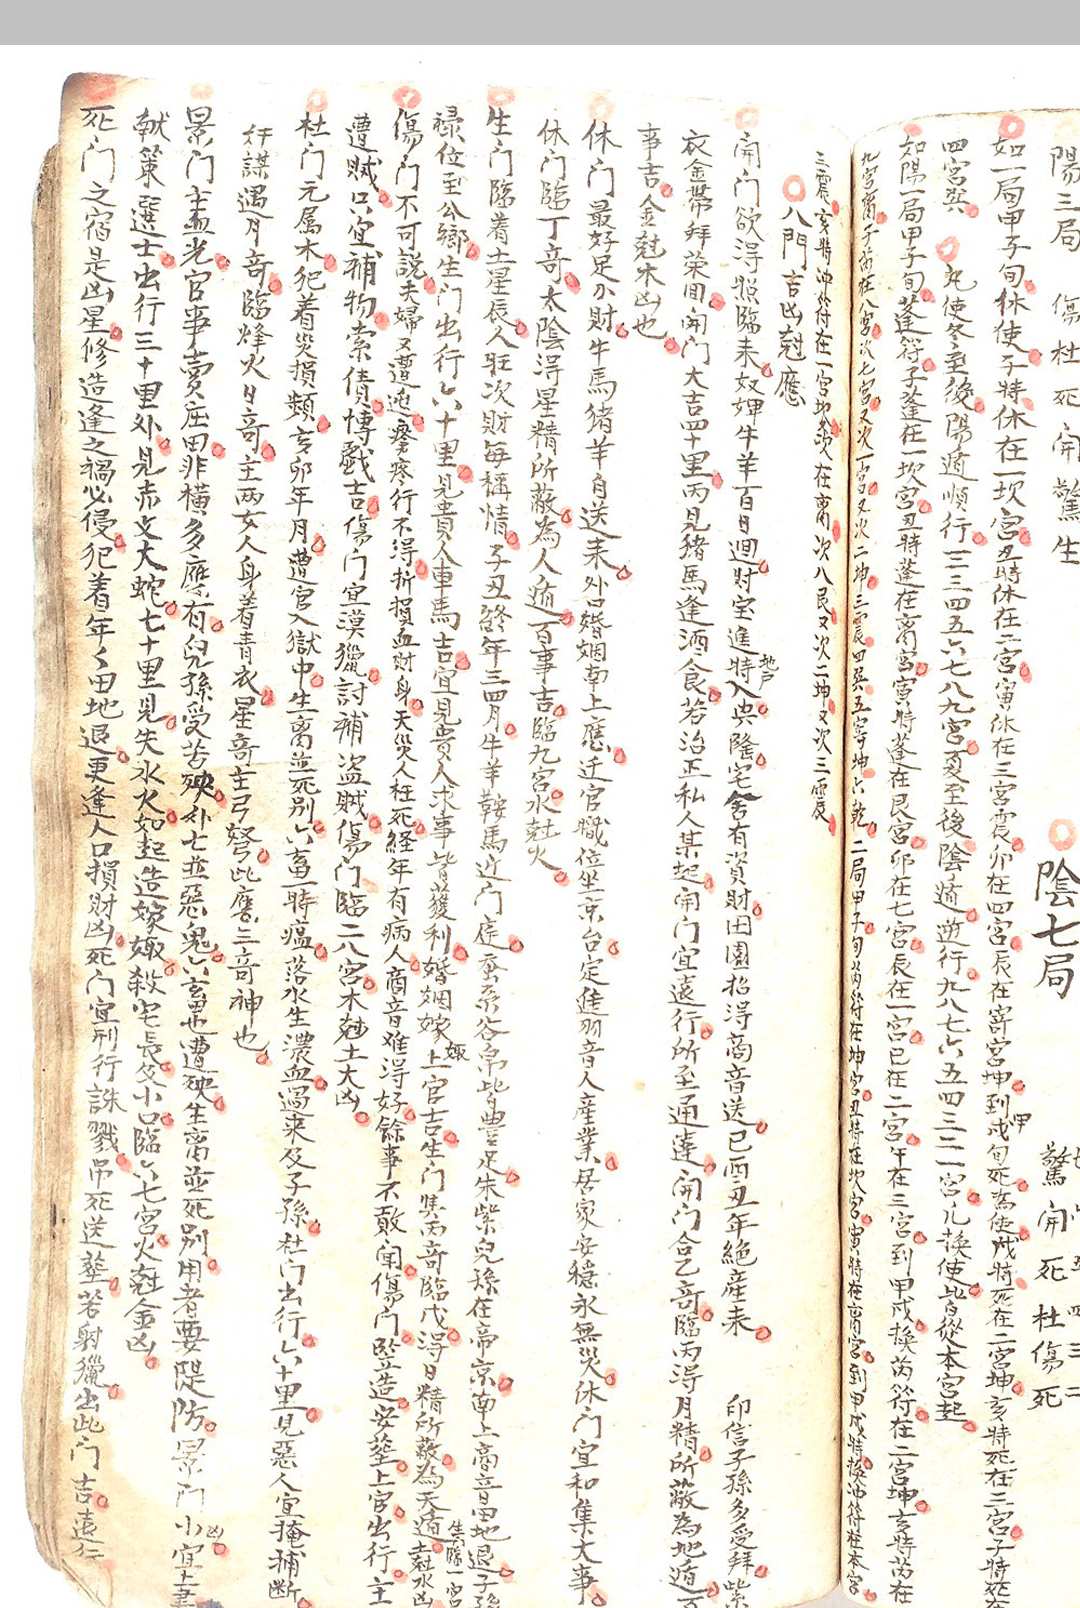 陽三局　傷杜死開驚生
陰七局　驚開死杜傷死
如一局甲子旬休使子特休在一坎宮丑時休在二宮寅休在三宮震卯在四宮辰在寄宮坤到戌旬死為使戌特死在二宮坤亥特死在三宮子特死在
四宮巽　九使冬至後陽遁順行二三四五六七八九宮夏至後陰遁逆行九八七六五四三二一宮凡換使皆從本宮起
如陽一局甲子旬蓬符子蓬在一坎宮丑時蓬在离宮寅特蓬在艮宮卯在七宮辰在一宮巳在二宮午在三宮到甲戌換芮符在二宮坤亥特芮在
九宮离子芮在八宮次七宮又次一宮又次二坤三震四巽五寄坤六乾二局甲子旬芮符在坤宮丑特在坎宮寅特在离宮到甲戌特換冲符在本宮
三震亥特冲符在一宮坎次在离次八艮又次二坤又次三震
八門吉凶尅應
開门欲淂照臨来奴婢牛羊百日迴財宝進特地户入典隆宅舍有資財田園招淂商音送巳酉丑年絕産来　印信子孫多受拜紫
衣金幣拜荣回開门大吉四十里丙見猪馬逢酒食若治正私人某起開门宜遠行所至通達開门合乙奇臨丙淂月精所蔽為地遁百
事吉金尅木凶也
休门最好足小財牛馬猪羊自送来外口婚姻南上應迁官職位坐京台定進羽音人産業居家安穩永無災休门宜和集大事
休门臨丁奇太陰淂星精所蔽為人遁百事吉臨九宮水尅火
生门臨着土星辰人旺次財每稱情子丑終年三四月牛羊鞍馬近门庭蚕糸谷帛皆豊足朱紫兒孫在帝京南上商音田地退子孫
禄位至公鄉生门出行六十里見貴人車馬吉宜見貴人求事皆獲利婚姻嫁娶上官吉生门集丙奇臨戊淂日精所蔽為天遁生门臨一宮土尅水凶
傷门不可説夫婦又遭迍瘡疼行不淂折損血財身天災人枉死経年有病人商音难淂好餘事不敢闻傷门竪造安葬上官出行主
遭賊只宜補物索債博戱吉傷门宜漠獵討補盜賊傷门臨二八宮木尅土大凶
杜门元属木犯着災損頻亥卯年月遭官入獄中生离並死别六畜一時瘟落水生濃血過来及子孫杜门出行六十里見惡人宜掩補断
奸謀遇月奇臨烽火日奇主两女人身着青衣星奇主弓弩此應三奇神也
景门主盂光官事賣庄田非横多應有兒孫受苦殃外七並惡鬼六畜也遭殃生离並死别用者要隄防景门小凶宜上書
献策選士出行三十里外見赤文大蛇七十里見失水火如起造嫁娶殺宅長及小口臨六七宮火尅金凶
死门之宿是凶星修造逢之禍必侵犯着年々田地退更逢人口損財凶死门宜刑行誅戮吊死送葬若射獵出此门吉遠行